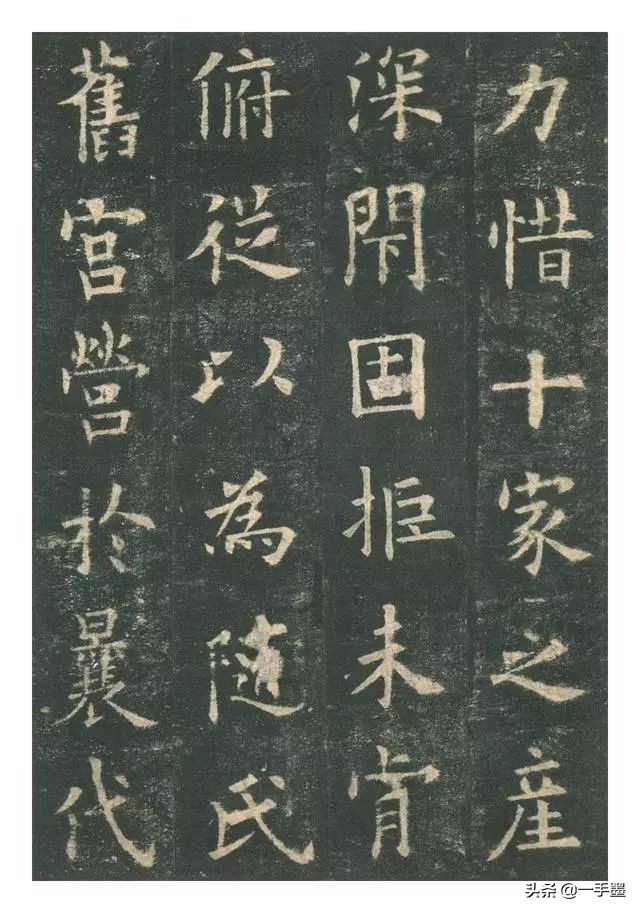 力惜十家之産
深閇固拒未肯
俯從以為隨氏
舊宮營於曩代
头条 @一手墨